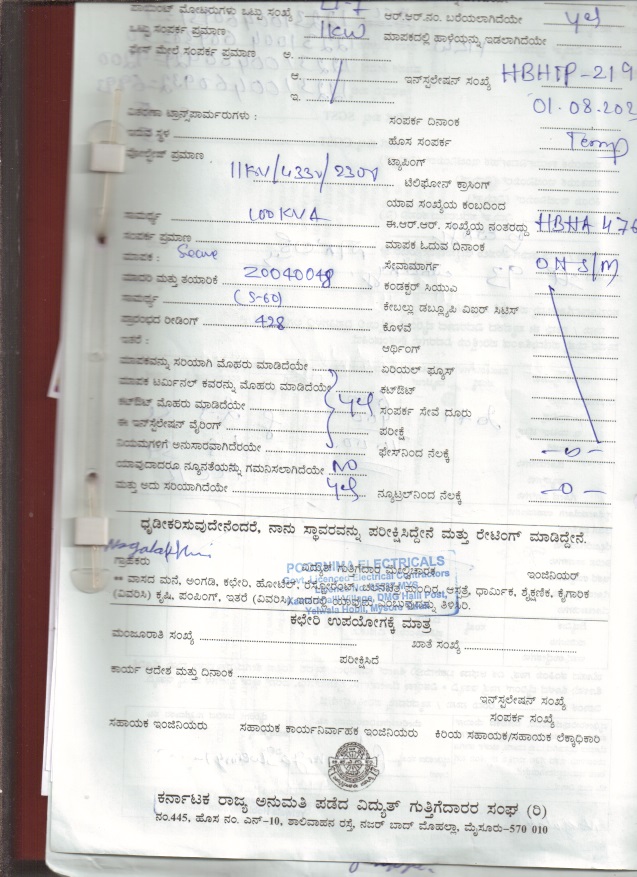 ಪಾಯಿಂಟ್ ಮೋಟರುಗಳು ಒಟ್ಟು ಸಂಖ್ಯೆ
ಆರ್.ಆರ್.ನಂ. ಬರೆಯಲಾಗಿದೆಯೇ yes
ಒಟ್ಟು ಸಂಪರ್ಕ ಪ್ರಮಾಣ 11KW
ಮಾಪಕದಲ್ಲಿ ಹಾಳೆಯನ್ನು ಇಡಲಾಗಿದೆಯೇ
ಫೇಸ್ ಮೇಲೆ ಸಂಪರ್ಕ ಪ್ರಮಾಣ ಅ.
ಆ. ಇನ್ಸ್ಟಲೇಷನ್ ಸಂಖ್ಯೆ HBHTP-219
ಇ. 01.08.202
ವಿತರಣಾ ಟ್ರಾನ್ಸ್‌ಪಾರ್ಮರುಗಳು : ಸಂಪರ್ಕ ದಿನಾಂಕ
ಇರುವ ಸ್ಥಳ ಹೊಸ ಸಂಪರ್ಕ Temp
ವೋಲ್ಟೇಜ್ ಪ್ರಮಾಣ ಟ್ಯಾಪಿಂಗ್
11KV/433V/230V ಟೆಲಿಫೋನ್ ಕ್ರಾಸಿಂಗ್
ಯಾವ ಸಂಖ್ಯೆಯ ಕಂಬದಿಂದ
ಸಾಮರ್ಥ್ಯ 100 KVA ಈ.ಆರ್.ಆರ್. ಸಂಖ್ಯೆಯ ನಂತರದ್ದು HBHA 476
ಸಂಪರ್ಕ ಪ್ರಮಾಣ ಮಾಪಕ ಓದುವ ದಿನಾಂಕ
ಮಾಪಕ : Secure ಸೇವಾಮಾರ್ಗ OH S/M
ಮಾದರಿ ಮತ್ತು ತಯಾರಿಕೆ Z0040048 ಕಂಡಕ್ಟರ್ ಸಿಯುಎ
ಸಾಮರ್ಥ್ಯ (5-60) ಕೇಬಲ್ಲು ಡಬ್ಲ್ಯೂಪಿ ವಿಐರ್ ಸಿಟಿಸ್
ಪ್ರಾರಂಭದ ರೀಡಿಂಗ್ 428 ಕೊಳವೆ
ಇತರೆ : ಆರ್ಥಿಂಗ್
ಮಾಪಕವನ್ನು ಸರಿಯಾಗಿ ಮೊಹರು ಮಾಡಿದೆಯೇ ಏರಿಯಲ್ ಫ್ಯೂಸ್
ಮಾಪಕ ಟರ್ಮಿನಲ್ ಕವರನ್ನು ಮೊಹರು ಮಾಡಿದೆಯೇ ಕಟ್‌ಔಟ್
ಕಟ್‌ಔಟ್ ಮೊಹರು ಮಾಡಿದೆಯೇ yes ಸಂಪರ್ಕ ಸೇವೆ ದೂರು
ಈ ಇನ್‌ಸ್ಟಲೇಷನ್ ವೈರಿಂಗ್ ಪರೀಕ್ಷೆ
ನಿಯಮಗಳಿಗೆ ಅನುಸಾರವಾಗಿದೆರೆಯೇ ಫೇಸ್‌ನಿಂದ ನೆಲಕ್ಕೆ -0-
ಯಾವುದಾದರೂ ನ್ಯೂನತೆಯನ್ನು ಗಮನಿಸಲಾಗಿದೆಯೇ NO
ಮತ್ತು ಅದು ಸರಿಯಾಗಿದೆಯೇ yes ನ್ಯೂಟ್ರಲ್‌ನಿಂದ ನೆಲಕ್ಕೆ -0-
ಧೃಡೀಕರಿಸುವುದೇನೆಂದರೆ, ನಾನು ಸ್ಥಾವರವನ್ನು ಪರೀಕ್ಷಿಸಿದ್ದೇನೆ ಮತ್ತು ರೇಟಿಂಗ್ ಮಾಡಿದ್ದೇನೆ.
ಗ್ರಾಹಕರು ವಿದ್ಯುತ್ ಗುತ್ತಿಗೆದಾರ ಮೇಲ್ವಿಚಾರಕ ಇಂಜಿನಿಯರ್
POORNIMA ELECTRICALS
Govt. Licenced Electrical Contractors
** ವಾಸದ ಮನೆ, ಅಂಗಡಿ, ಕಛೇರಿ, ಹೋಟೆಲ್, ರೆಸ್ಟೋರೆಂಟ್, ಚಲನಚಿತ್ರ ಮಂದಿರ, ಆಸ್ಪತ್ರೆ, ಧಾರ್ಮಿಕ, ಶೈಕ್ಷಣಿಕ, ಕೈಗಾರಿಕ
(ವಿವರಿಸಿ) ಕೃಷಿ, ಪಂಪಿಂಗ್, ಇತರೆ (ವಿವರಿಸಿ) ಇದರಲ್ಲಿ ಯಾವುದು ಎಂಬುದನ್ನು ತಿಳಿಸಿರಿ.
Village, DMG Halli Post,
Yelwala Hobli, Mysore
ಕಛೇರಿ ಉಪಯೋಗಕ್ಕೆ ಮಾತ್ರ
ಮಂಜೂರಾತಿ ಸಂಖ್ಯೆ ಖಾತೆ ಸಂಖ್ಯೆ
ಪರೀಕ್ಷಿಸಿದೆ
ಕಾರ್ಯ ಆದೇಶ ಮತ್ತು ದಿನಾಂಕ
ಇನ್‌ಸ್ಟಲೇಷನ್ ಸಂಖ್ಯೆ
ಸಂಪರ್ಕ ಸಂಖ್ಯೆ
ಸಹಾಯಕ ಇಂಜಿನಿಯರು ಸಹಾಯಕ ಕಾರ್ಯನಿರ್ವಾಹಕ ಇಂಜಿನಿಯರು ಕಿರಿಯ ಸಹಾಯಕ/ಸಹಾಯಕ ಲೆಕ್ಕಾಧಿಕಾರಿ
ಕರ್ನಾಟಕ ರಾಜ್ಯ ಅನುಮತಿ ಪಡೆದ ವಿದ್ಯುತ್ ಗುತ್ತಿಗೆದಾರರ ಸಂಘ (ರಿ)
ನಂ.445, ಹೊಸ ನಂ. ಎನ್-10, ಶಾಲಿವಾಹನ ರಸ್ತೆ, ನಜರ್ ಬಾದ್ ಮೊಹಲ್ಲಾ, ಮೈಸೂರು-570 010